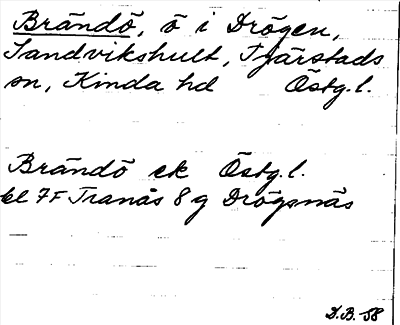 Brändö, ö i Drögen,
Sandvikshult, Tjärstads
sn, Kinda hd Östg.l.
Brändö ek Östg.l.
bl 7F Tranås 8g Drögsnäs
D.B.-58